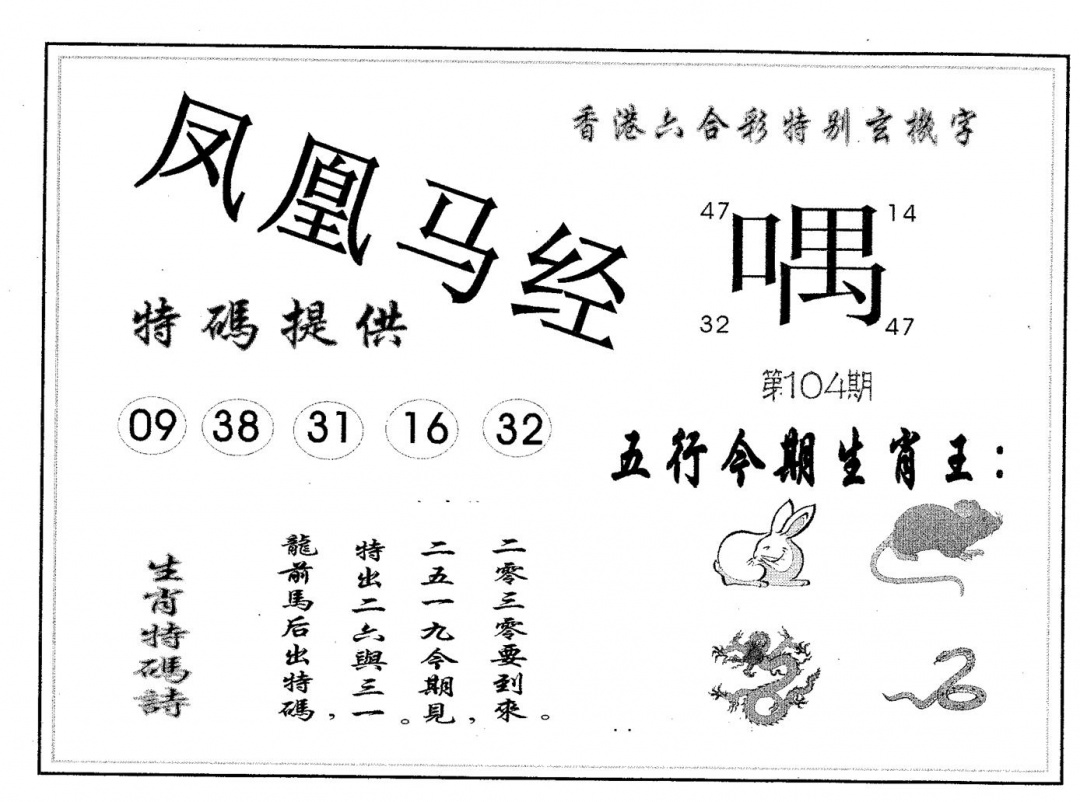 凤凰马经
特碼提供
09 38 31 16 32
生肖特碼詩
龍前馬后出特碼，
特出二六與三一。
二五一九今期見，
二零三零要到來。
香港六合彩特别玄機字
47 14
喁
32 47
第104期
五行今期生肖王：